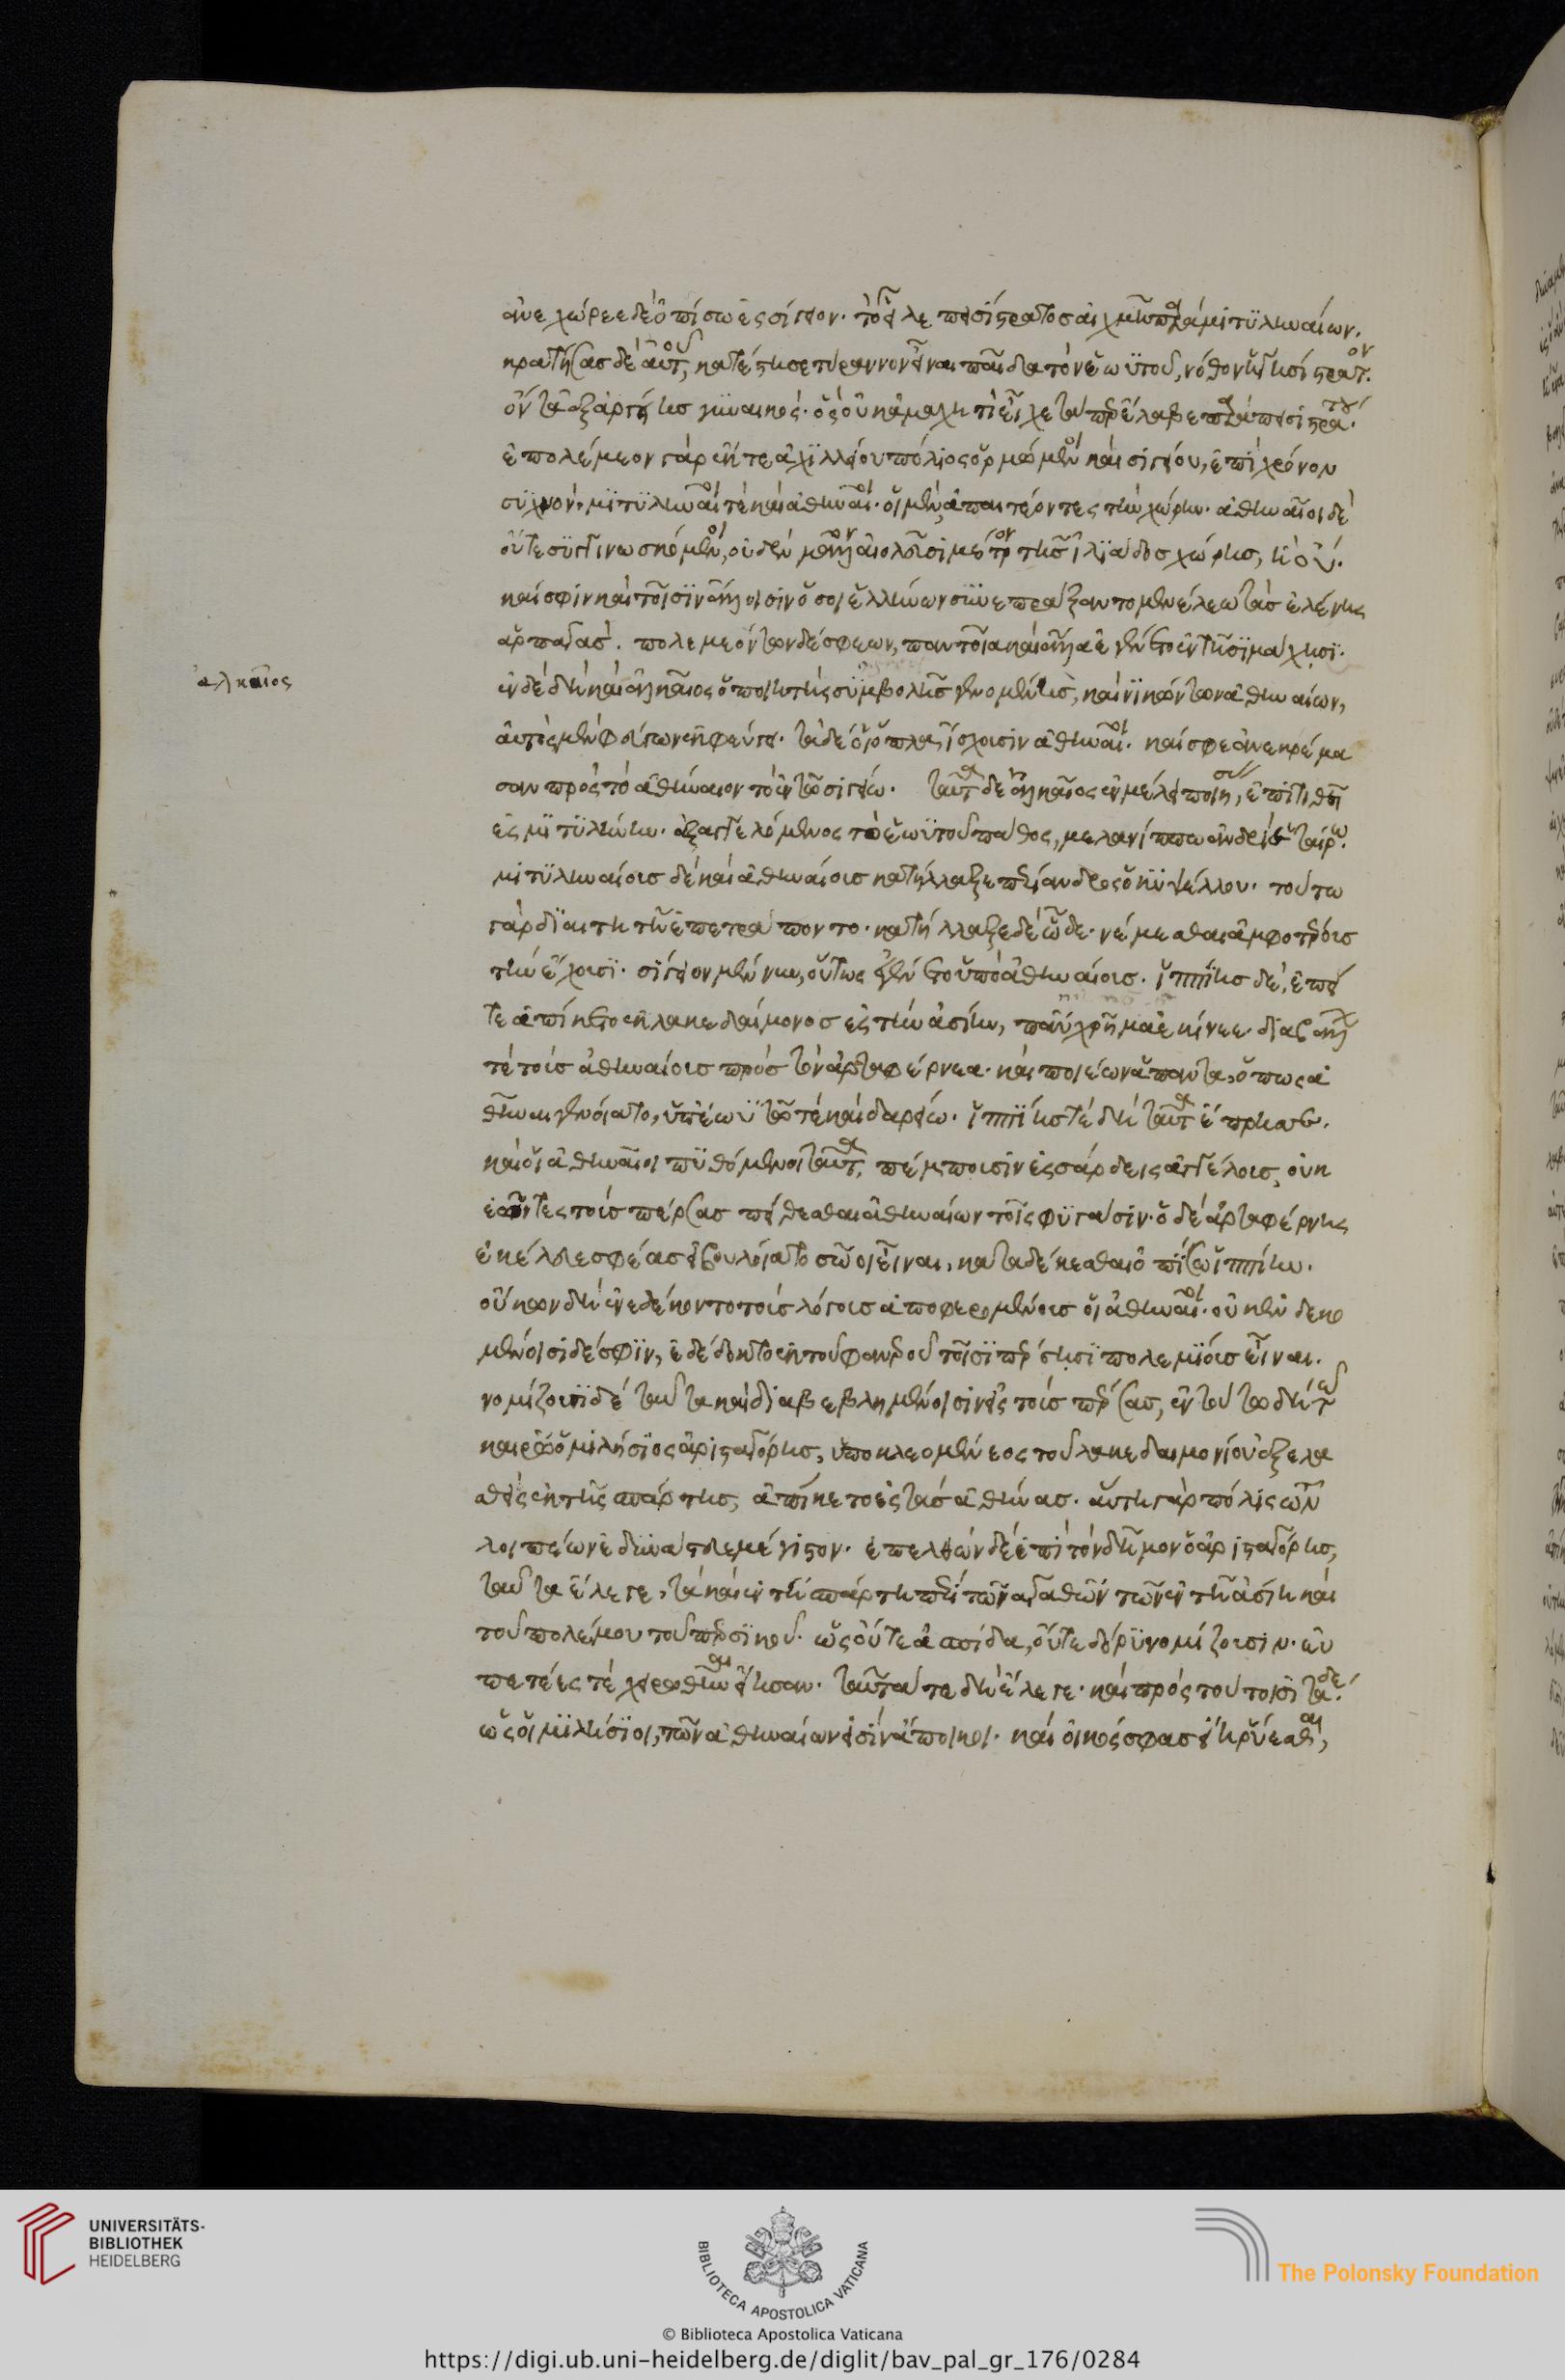 ἀνεχώρεε δὲ ὀπίσω ἐς σίγειον. τὸ εἷλε πεισίστρατος αἰχμῆ παρὰ μιτυληναίων.
κρατήσας δὲ αὐτοῦ, κατέστησε τύραννον εἶναι παῖδα τὸν ἑωυτοῦ, νόθον ἡγησίστρατον.
ὄντα ἐξ ἀργείης γυναικός. ὃς οὐκ ἀμαχητὶ εἶχε τὰ παρέλαβε παρὰ πεισιστράτου.
ἐπολέμεον γὰρ ἔκ τε ἀχιλληίου πόλιος ὁρμεόμενοι καὶ σιγείου, ἐπὶ χρόνον
συχνόν. μιτυληναῖοί τε καὶ ἀθηναῖοι. οἱ μὲν, ἀπαιτέοντες τὴν χώρην. ἀθηναῖοι δὲ
οὔτε συγγινωσκόμενοι, οὐδὲν μᾶλλον αἰολεῦσι μετεὸν τῆς ἰλιάδος χώρης, ἢ οὐ.
καί σφιν καὶ τοῖσιν ἄλλοισιν ὅσοι ἑλλήνων συνεπράξαντο μενέλεω τὰς ἑλένης
ἁρπαγάς. πολεμεόντων δέ σφεων, παντοῖα καὶ ἄλλα ἐγένετο ἐν τῆσι μάχησι.
ἀλκαῖος
ἐν δὲ δὴ καὶ ἀλκαῖος ὁ ποιητὴς συμβολῆς γενομένης, καὶ νικώντων ἀθηναίων,
αὐτὸς μὲν φεύγων ἐκφεύγει. τὰ δέ οἱ ὅπλα ἴσχουσιν ἀθηναῖοι. καί σφε ἀνεκρέμα
σαν πρὸς τὸ ἀθήναιον τὸ ἐν τῶ σιγείω. ταῦτα δὲ ἀλκαῖος ἐν μέλει ποιήσας, ἐπιτιθεῖ
ἐς μιτυλήνην. ἐξαγγελόμενος τὸ ἑωυτοῦ πάθος, μελανίππω ἀνδρὶ ἑταίρω.
μιτυληναίους δὲ καὶ ἀθηναίους κατήλλαξε περίανδρος ὁ κυψέλλου. τούτω
γὰρ διαιτητῆ ἐπετράποντο. κατήλλαξε δὲ ὧδε. νέμεσθαι ἀμφοτέρους
τὴν ἔχουσι. σίγειον μέν νυν, οὕτως ἐγένετο ὑπὸ ἀθηναίοισ. ἱππίης δὲ, ἐπεί
τε ἀπίκετο ἐκ λακεδαίμονος ἐς τὴν ἀσίην, πᾶν χρῆμα ἐκίνεε. διαβάλλων
τὲ τοὺς ἀθηναίους πρὸς τὸν ἀρταφέρνεα. καὶ ποιέων ἅπαντα, ὅπως ἀ
θῆναι γενοίατο, ὑπ' ἑωυτῶ τὲ καὶ δαρείω. ἱππίης τὲ δὴ ταῦτα ἔπρησσε.
καὶ οἱ ἀθηναῖοι πυθόμενοι ταῦτα, πέμπουσιν ἐς σάρδεις ἀγγέλους, οὐκ
ἐῶντες τοὺς πέρσας πείθεσθαι ἀθηναίων τοῖς φυγάσιν. ὁ δὲ ἀρταφέρνης
ἐκέλευέ σφεας εἰ βουλοίατο σῶοι εἶναι, καταδέκεσθαι ὀπίσω ἱππίην.
οὔκων δὴ ἐνεδέκοντο τοὺς λόγους ἀποφερομένους οἱ ἀθηναῖοι. οὐκ ἐνδεκο
μένοισι δέ σφιν, ἐδέδοκτο ἐκ τοῦ φανεροῦ τοῖσι πέρσησι πολεμίους εἶναι.
νομίζουσι δὲ ταῦτα καὶ διαβεβλημένοισιν ἐς τοὺς πέρσας, ἐν τούτω δὴ τῶ
καιρῶ ὁ μιλήσιος ἀρισταγόρης, ὑπὸ κλεομένεος τοῦ λακεδαιμονίου ἐξελα
σθεὶς ἐκ τῆς σπάρτης, ἀπίκετο ἐς τὰς ἀθήνας. αὕτη γὰρ πόλις ὧν
λοιπέων ἐδυνάστευε μέγιστον. ἐπελθὼν δὲ ἐπὶ τὸν δῆμον ὁ ἀρισταγόρης,
ταῦτα ἔλεγε, τὰ καὶ ἐν τῆ σπάρτη περὶ τῶν ἀγαθῶν τῶν ἐν τῆ ἀσίη καὶ
τοῦ πολέμου τοῦ περσικοῦ. ὡς οὔτε ἀσπίδα, οὔτε δόρυ νομίζουσιν. εὐ
πετέες τὲ χειρωθῆναι εἴησαν. ταῦτά τε δὴ ἔλεγε. καὶ πρὸς τούτοισι τάδε.
ὡς οἱ μιλήσιοι, τῶν ἀθηναίων εἰσὶν ἄποικοι. καὶ οἰκός σφας εἴη ῥύεσθαι,
UNIVERSITÄTS-
BIBLIOTHEK
HEIDELBERG
BIBLIOTECA APOSTOLICA VATICANA
The Polonsky Foundation
© Biblioteca Apostolica Vaticana
https://digi.ub.uni-heidelberg.de/diglit/bav_pal_gr_176/0284